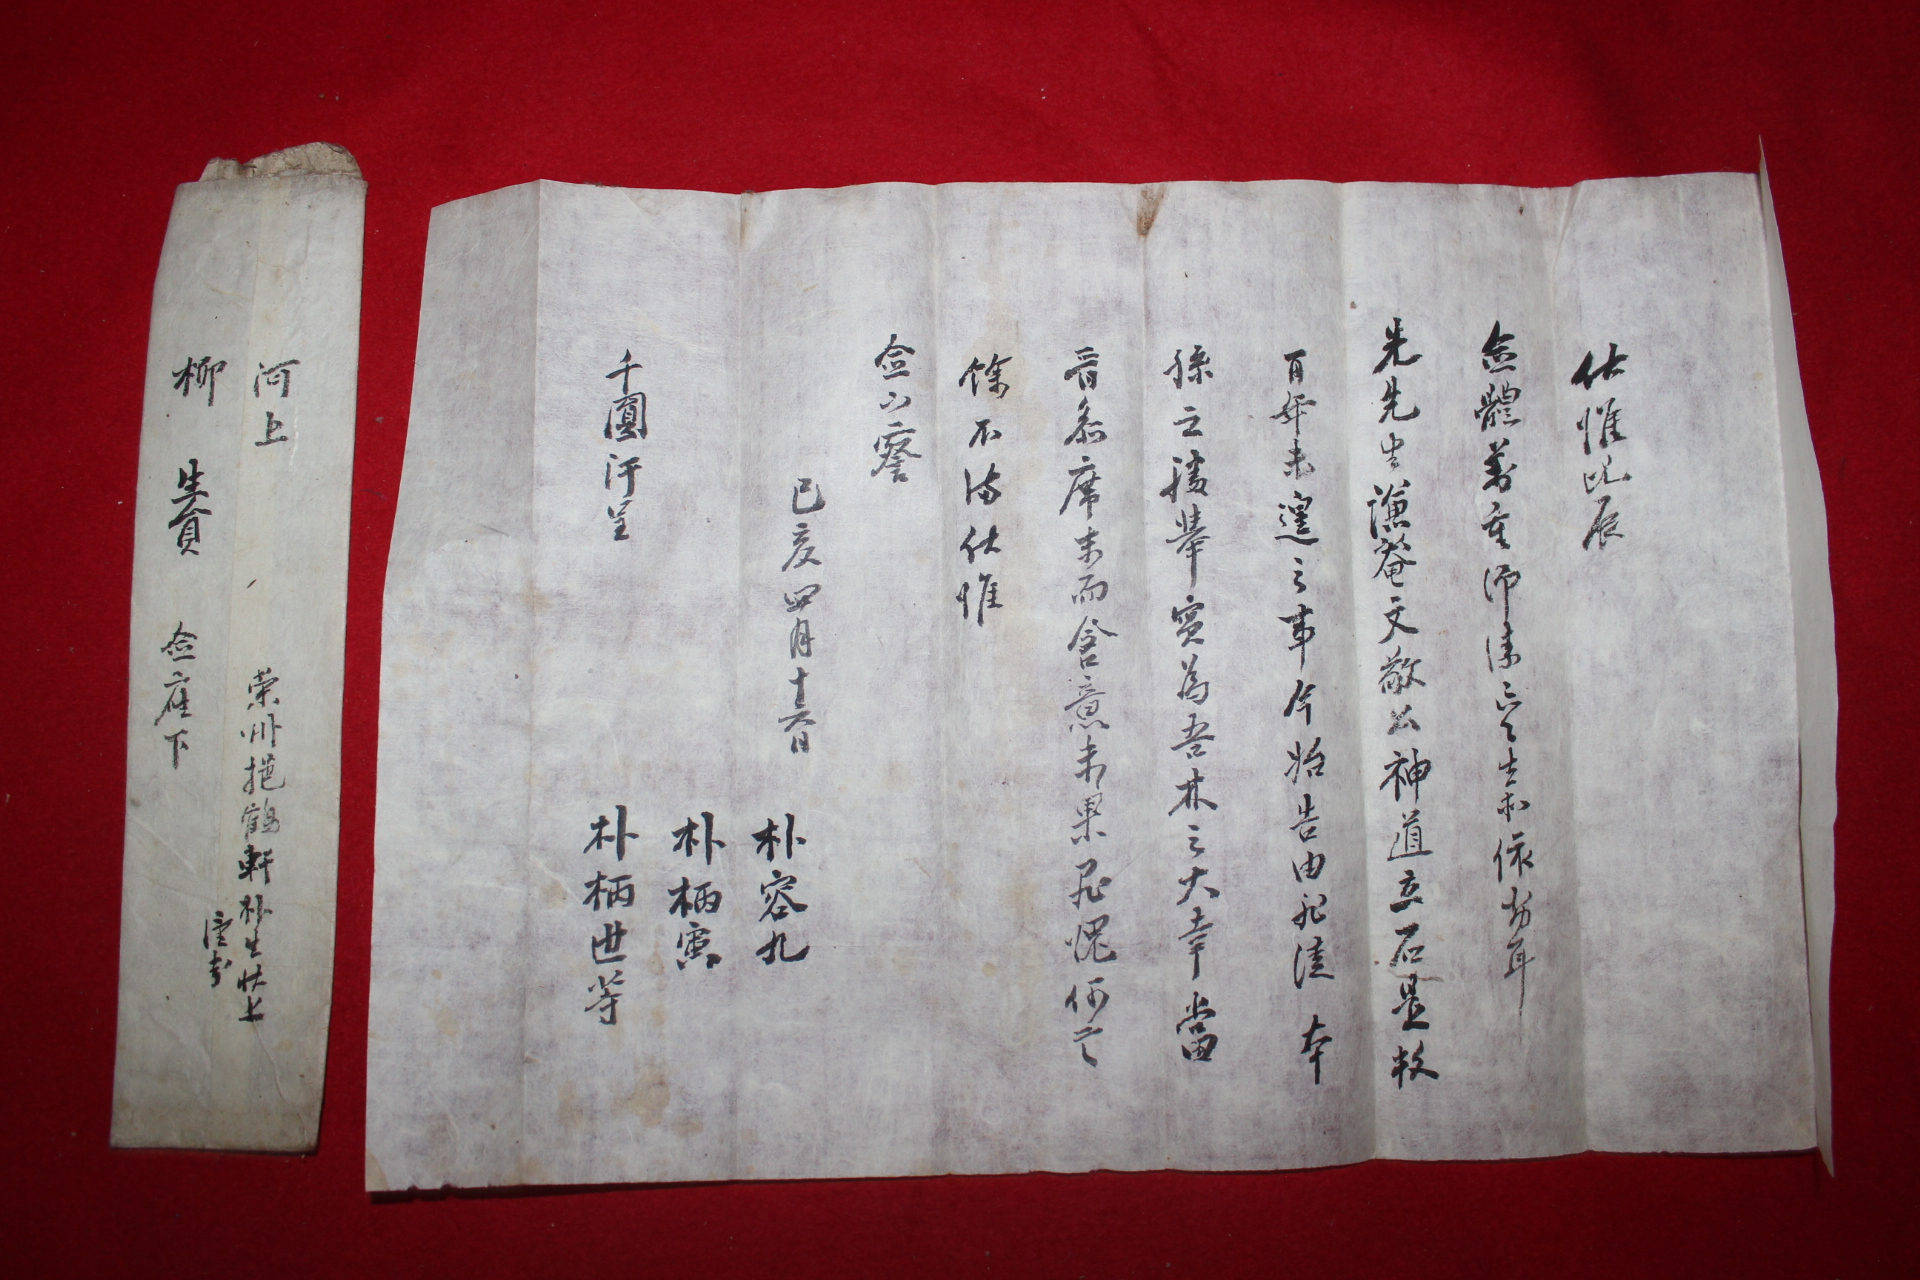 伏惟此辰
僉體萬重仰溸 生等依劣耳
先先生謙菴文敬公神道立石是救
百年未遑之事今始告由 本
孫之積擧實爲吾林之大幸當
晉參席末而含意未果 愧何言
餘不備伏惟
僉下察
己亥四月十六日
朴容九
朴柄寅
朴柄世等
千圓汗呈
河上
柳 生員 僉座下
榮州挹鶴軒朴生狀上
謹封